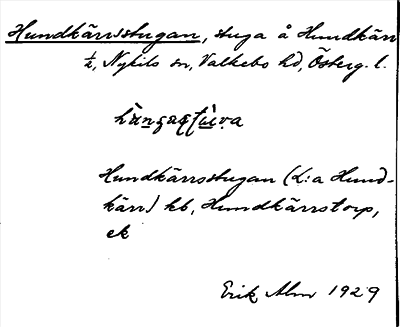 Hundkärrsstugan, stuga å Hundkärr
½, Nykils sn, Valkebo hd, Österg. l.
Hundkärrsstugan (L:a Hund-
kärr) kb, Hundkärrstorp,
ek
Erik Alm 1929